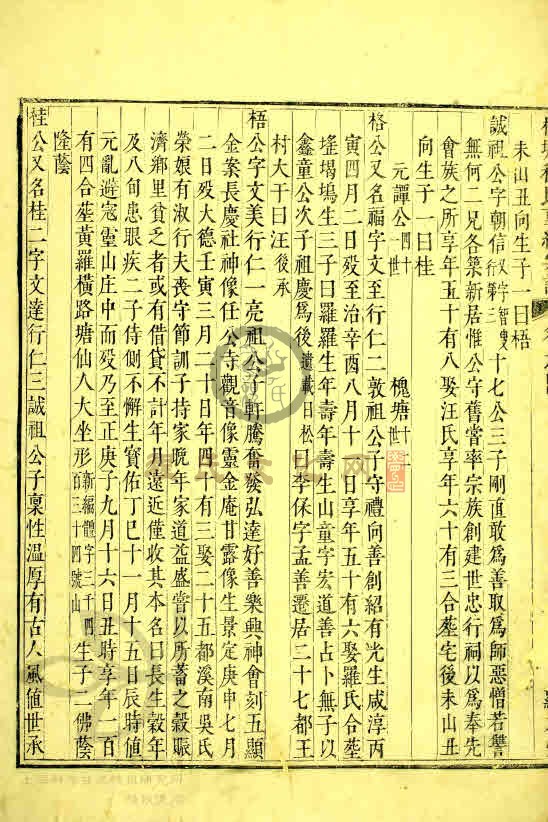 未山丑向生子一曰梧
誠祖公字朝信又字智叟行第三十七公三子剛直敢爲善取爲師惡憎若讐
無何二兄各築新居惟公守舊嘗率宗族創建世忠行祠以爲奉先
會族之所享年五十有八娶汪氏享年六十有三合塟宅後未山丑
向生子一曰桂
元譚公四十一世 槐塘十一世
格公又名福字文至行仁二敦祖公子守禮向善創紹有光生咸淳丙
寅四月二日歿至治辛酉八月十一日享年五十有六娶羅氏合塟
瑤堨塢生三子曰羅羅生年壽年壽生山童字宏道善占卜無子以
鑫童公次子祖慶爲後遺載日松曰李保字孟善遷居二十七都王
村大干曰汪後承
梧公字文美行仁一亮祖公子軒騰奮發弘達好善樂興神會刻五顯
金案長慶社神像任公寺觀音像靈金庵甘露像生景定庚申七月
二日歿大德壬寅三月二十日年四十有三娶二十五都溪南吳氏
榮娘有淑行夫喪守節訓子持家晚年家道益盛嘗以所蓄之穀賑
濟鄉里貧乏者或有借貸不計年月遠近僅收其本名曰長生穀年
及八旬患眼疾二子侍側不懈生寳佑丁巳十一月十五日辰時值
元亂避寇靈山庄中而歿乃至正庚子九月十六日丑時享年一百
有四合塟黃羅橫路塘仙人大坐形新編體字三千四百二十四號山生子二佛蔭
隆蔭
桂公又名桂二字文達行仁三誠祖公子稟性溫厚有古人風值世承